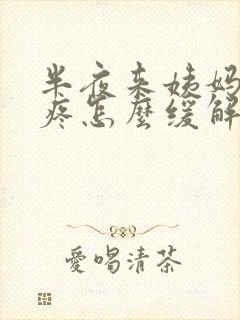 半夜来姨妈
疼怎麼缓解
愛喝清茶